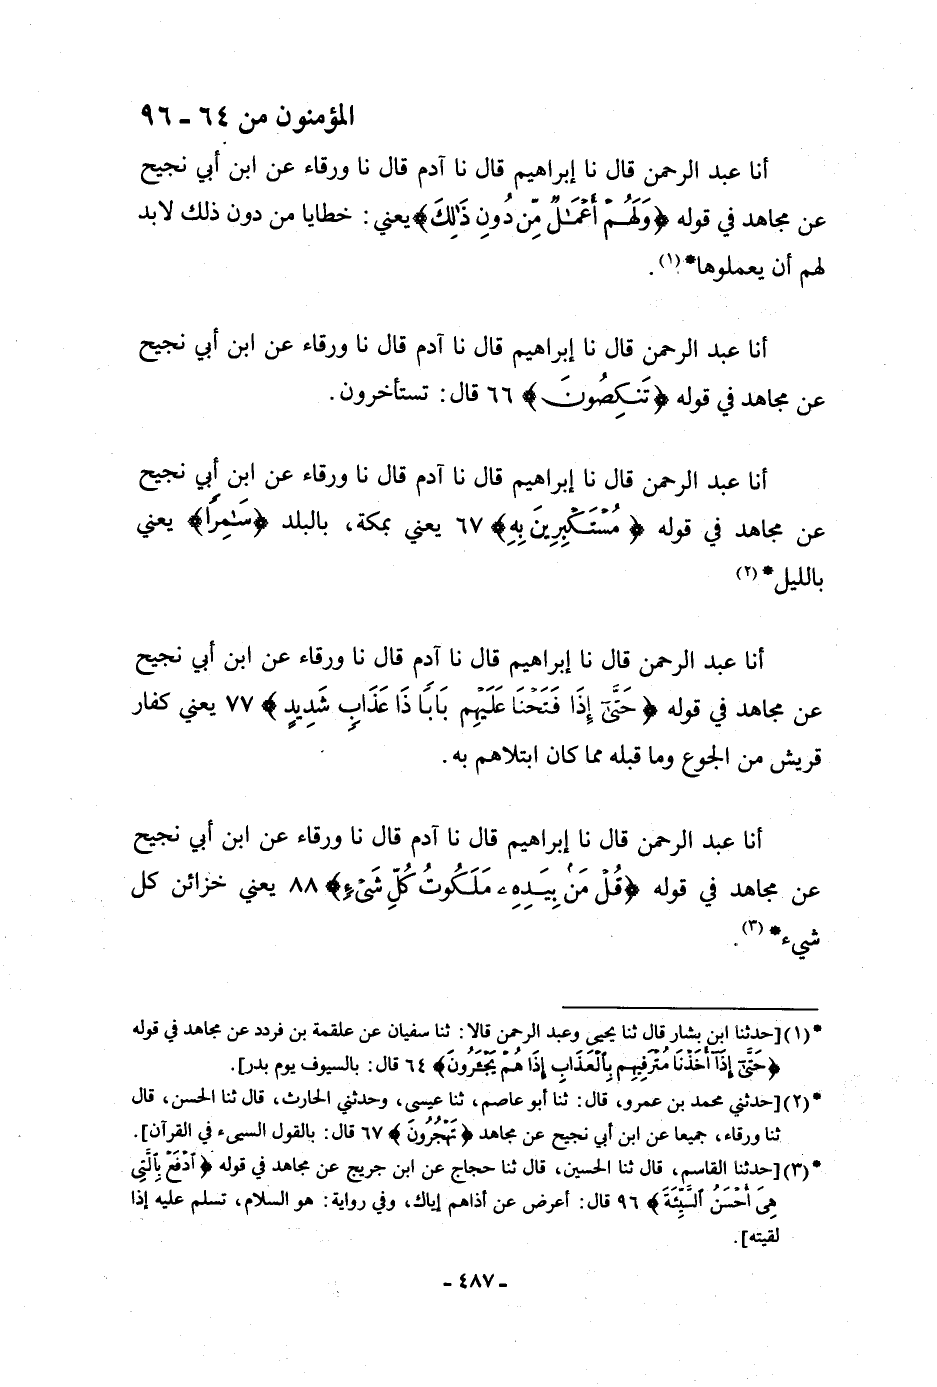 المؤمنون من ٦٤ - ٩٦
أنا عبد الرحمن قال نا إبراهيم قال نا آدم قال نا ورقاء عن ابن أبي نجيح
عن مجاهد في قوله ﴿وَلَهُمْ أَعْمَٰلٌ مِّن دُونِ ذَٰلِكَ﴾يعني: خطايا من دون ذلك لابد
لهم أن يعملوها*(١).
أنا عبد الرحمن قال نا إبراهيم قال نا آدم قال نا ورقاء عن ابن أبي نجيح
عن مجاهد في قوله ﴿تَنكِصُونَ﴾ ٦٦ قال: تستأخرون.
أنا عبد الرحمن قال نا إبراهيم قال نا آدم قال نا ورقاء عن ابن أبي نجيح
عن مجاهد في قوله ﴿مُسْتَكْبِرِينَ بِهِ﴾ ٦٧ يعني بمكة، بالبلد ﴿سَٰمِرًا﴾ يعني
بالليل*(٢)
أنا عبد الرحمن قال نا إبراهيم قال نا آدم قال نا ورقاء عن ابن أبي نجيح
عن مجاهد في قوله ﴿حَتَّىٰٓ إِذَا فَتَحْنَا عَلَيْهِم بَابًا ذَا عَذَابٍ شَدِيدٍ﴾ ٧٧ يعني كفار
قريش من الجوع وما قبله مما كان ابتلاهم به.
أنا عبد الرحمن قال نا إبراهيم قال نا آدم قال نا ورقاء عن ابن أبي نجيح
عن مجاهد في قوله ﴿قُلْ مَنۢ بِيَدِهِۦ مَلَكُوتُ كُلِّ شَىْءٍ﴾ ٨٨ يعني خزائن كل
شيء*(٣).
*(١)[حدثنا ابن بشار قال ثنا يحيى وعبد الرحمن قالا: ثنا سفيان عن علقمة بن فردد عن مجاهد في قوله
﴿حَتَّىٰٓ إِذَآ أَخَذْنَا مُتْرَفِيهِم بِٱلْعَذَابِ إِذَا هُمْ يَجْـَٔرُونَ﴾ ٦٤ قال: بالسيوف يوم بدر].
*(٢)[حدثني محمد بن عمرو، قال: ثنا أبو عاصم، ثنا عيسى، وحدثني الحارث، قال ثنا الحسن، قال
ثنا ورقاء، جميعا عن ابن أبي نجيح عن مجاهد ﴿تَهْجُرُونَ﴾ ٦٧ قال: بالقول السيء في القرآن].
*(٣)[حدثنا القاسم، قال ثنا الحسين، قال ثنا حجاج عن ابن جريج عن مجاهد في قوله ﴿ٱدْفَعْ بِٱلَّتِى
هِىَ أَحْسَنُ ٱلسَّيِّئَةَ﴾ ٩٦ قال: أعرض عن أذاهم إياك، وفي رواية: هو السلام، تسلم عليه إذا
لقيته].
- ٤٨٧ -